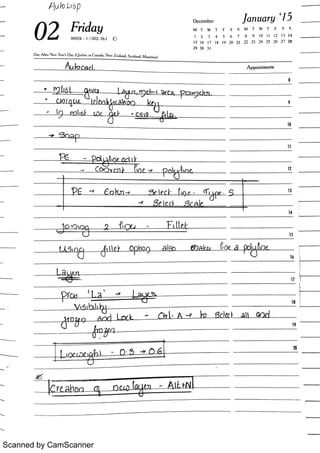 AutoLisp
02 Friday
WEEK - 1 / 002-363
December
January '15
M T W T F S S M T W T F S S
1 2 3 4 5 6 7 8 9 10 11 12 13 14
15 16 17 18 19 20 21 22 23 24 25 26 27 28
29 30 31
Day After New Year's Day (Quebec in Canada, New Zealand, Scotland, Mauritius)
Autocad.
Appointments
8
• mlist gives Layer, metric area, parameters.
• unique identification key
9
• In mlist we get • csv file
10
→ Snap
11
PE - polyline edit
- Convert line → polyline
12
PE → Enter → Select line - Type - S
13
→ Select Scale
14
Joining 2 lines - Fillet
15
Using fillet option also makes line a polyline
16
Layer
17
Press 'La' → Layers
Visibility
18
frozen and Lock - Ctrl - A → to select all and
19
frozen
Lineweight - 0.3 → 0.6
20
Creation of new layer - Alt+N
Scanned by CamScanner